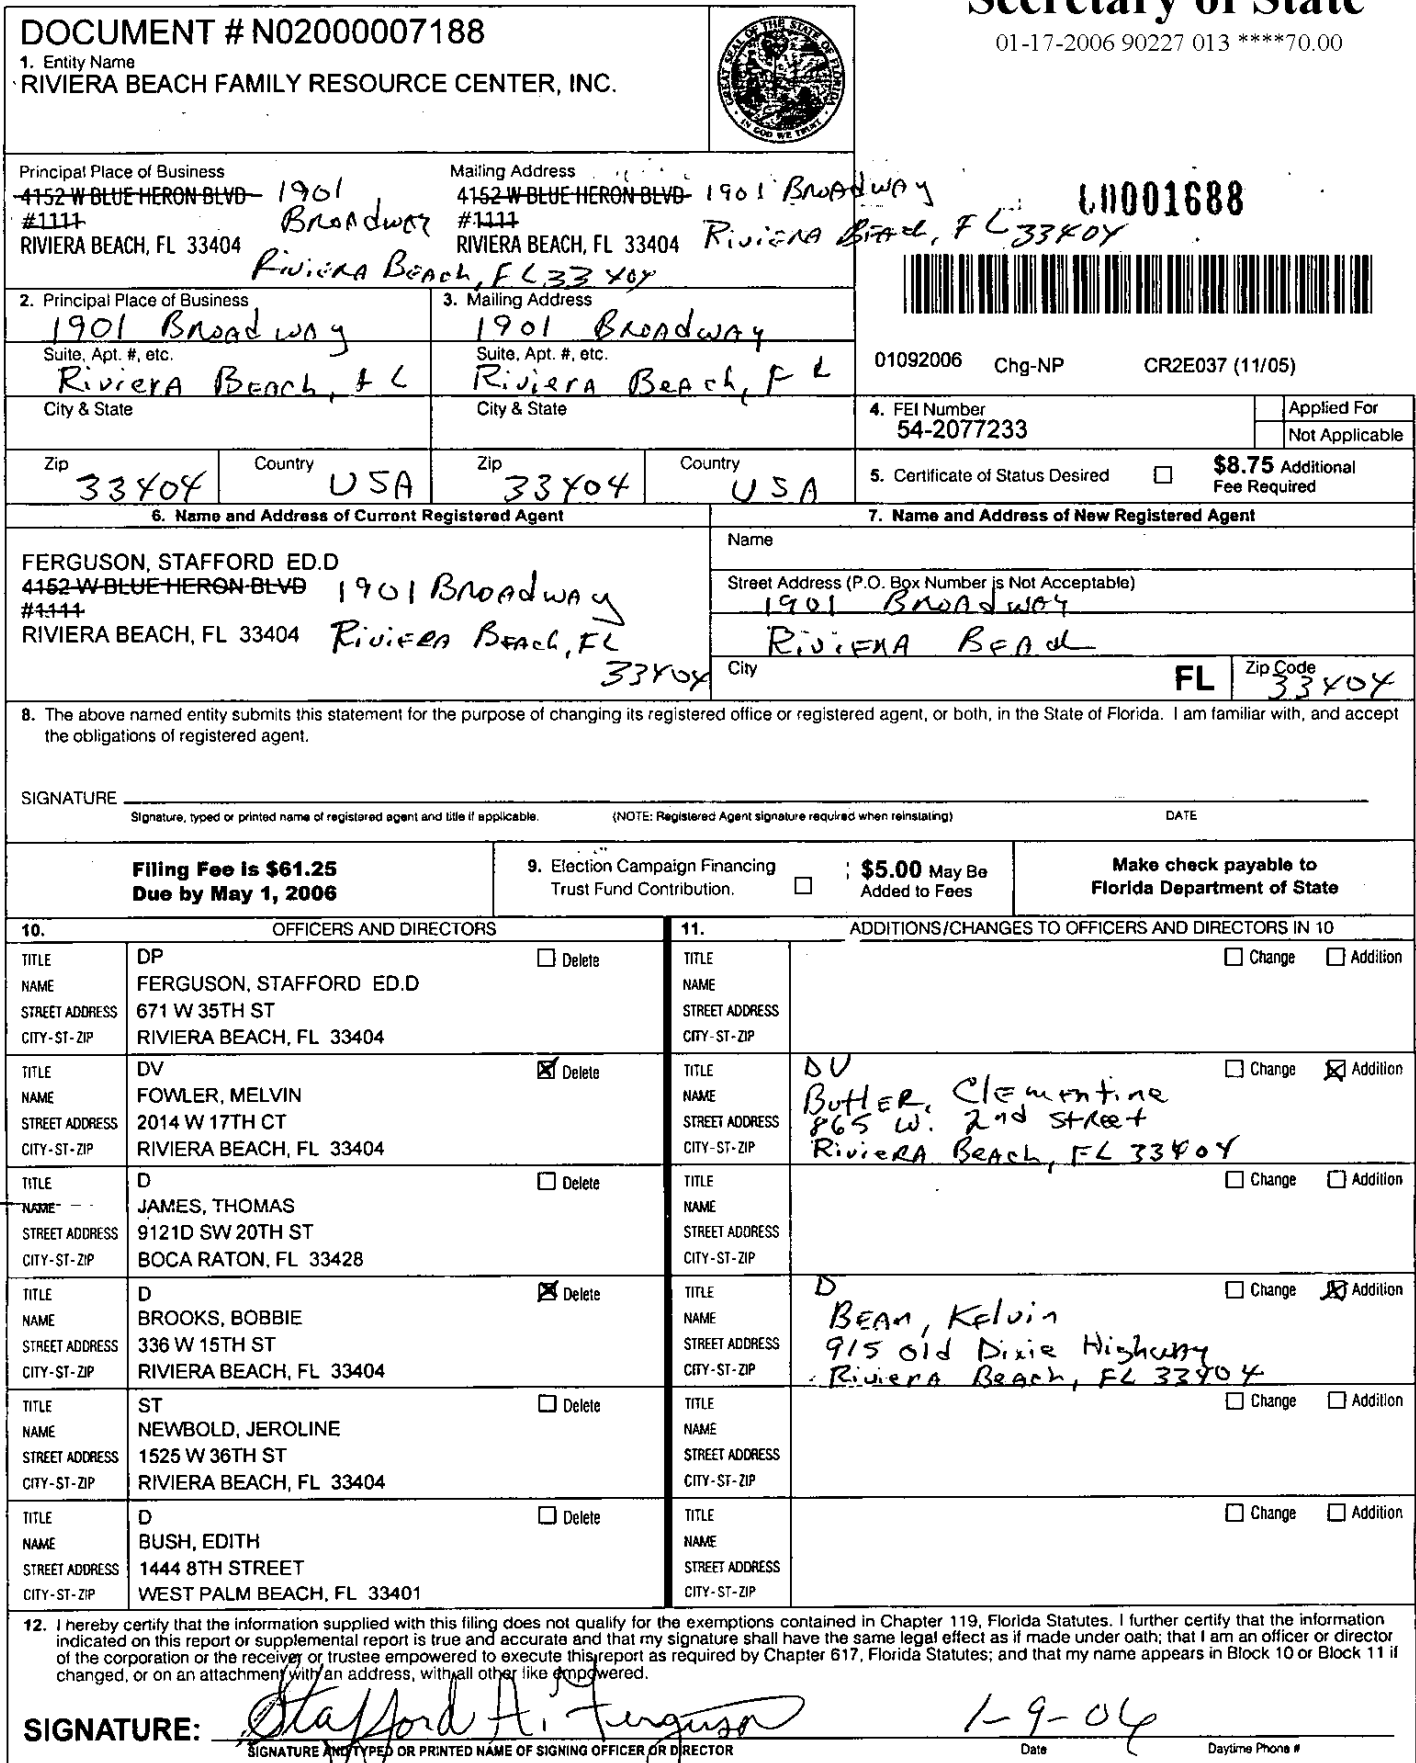 Secretary of State
01-17-2006 90227 013 ****70.00
DOCUMENT # N02000007188
1. Entity Name
RIVIERA BEACH FAMILY RESOURCE CENTER, INC.
GREAT SEAL OF THE STATE OF FLORIDA
IN GOD WE TRUST
Principal Place of Business
4152 W BLUE HERON BLVD 1901
#1111 Broadway
RIVIERA BEACH, FL 33404
Riviera Beach, FL 33404
Mailing Address
4152 W BLUE HERON BLVD 1901 Broadway
#1111
RIVIERA BEACH, FL 33404 Riviera Beach, FL 33404
60001688
2. Principal Place of Business
1901 Broadway
Suite, Apt. #, etc.
Riviera Beach, FL
City & State
Zip 33404 Country USA
3. Mailing Address
1901 Broadway
Suite, Apt. #, etc.
Riviera Beach, FL
City & State
Zip 33404 Country USA
01092006 Chg-NP CR2E037 (11/05)
4. FEI Number
54-2077233
Applied For
Not Applicable
5. Certificate of Status Desired
$8.75 Additional
Fee Required
6. Name and Address of Current Registered Agent
FERGUSON, STAFFORD ED.D
4152 W BLUE HERON BLVD 1901 Broadway
#1111
RIVIERA BEACH, FL 33404 Riviera Beach, FL
33404
7. Name and Address of New Registered Agent
Name
Street Address (P.O. Box Number is Not Acceptable)
1901 Broadway
Riviera Beach
City FL Zip Code 33404
8. The above named entity submits this statement for the purpose of changing its registered office or registered agent, or both, in the State of Florida. I am familiar with, and accept
the obligations of registered agent.
SIGNATURE
Signature, typed or printed name of registered agent and title if applicable. (NOTE: Registered Agent signature required when reinstating) DATE
Filing Fee is $61.25
Due by May 1, 2006
9. Election Campaign Financing
Trust Fund Contribution.
$5.00 May Be
Added to Fees
Make check payable to
Florida Department of State
10. OFFICERS AND DIRECTORS
11. ADDITIONS/CHANGES TO OFFICERS AND DIRECTORS IN 10
TITLE DP Delete
NAME FERGUSON, STAFFORD ED.D
STREET ADDRESS 671 W 35TH ST
CITY-ST-ZIP RIVIERA BEACH, FL 33404
TITLE Change Addition
NAME
STREET ADDRESS
CITY-ST-ZIP
TITLE DV Delete
NAME FOWLER, MELVIN
STREET ADDRESS 2014 W 17TH CT
CITY-ST-ZIP RIVIERA BEACH, FL 33404
TITLE DV Change Addition
NAME Butler, Clementine
STREET ADDRESS 865 W. 2nd Street
CITY-ST-ZIP Riviera Beach, FL 33404
TITLE D Delete
NAME JAMES, THOMAS
STREET ADDRESS 9121D SW 20TH ST
CITY-ST-ZIP BOCA RATON, FL 33428
TITLE Change Addition
NAME
STREET ADDRESS
CITY-ST-ZIP
TITLE D Delete
NAME BROOKS, BOBBIE
STREET ADDRESS 336 W 15TH ST
CITY-ST-ZIP RIVIERA BEACH, FL 33404
TITLE D Change Addition
NAME Bean, Kelvin
STREET ADDRESS 915 Old Dixie Highway
CITY-ST-ZIP Riviera Beach, FL 33404
TITLE ST Delete
NAME NEWBOLD, JEROLINE
STREET ADDRESS 1525 W 36TH ST
CITY-ST-ZIP RIVIERA BEACH, FL 33404
TITLE Change Addition
NAME
STREET ADDRESS
CITY-ST-ZIP
TITLE D Delete
NAME BUSH, EDITH
STREET ADDRESS 1444 8TH STREET
CITY-ST-ZIP WEST PALM BEACH, FL 33401
TITLE Change Addition
NAME
STREET ADDRESS
CITY-ST-ZIP
12. I hereby certify that the information supplied with this filing does not qualify for the exemptions contained in Chapter 119, Florida Statutes. I further certify that the information
indicated on this report or supplemental report is true and accurate and that my signature shall have the same legal effect as if made under oath; that I am an officer or director
of the corporation or the receiver or trustee empowered to execute this report as required by Chapter 617, Florida Statutes; and that my name appears in Block 10 or Block 11 if
changed, or on an attachment with an address, with all other like empowered.
SIGNATURE: Stafford A. Ferguson 1-9-06
SIGNATURE AND TYPED OR PRINTED NAME OF SIGNING OFFICER OR DIRECTOR Date Daytime Phone #